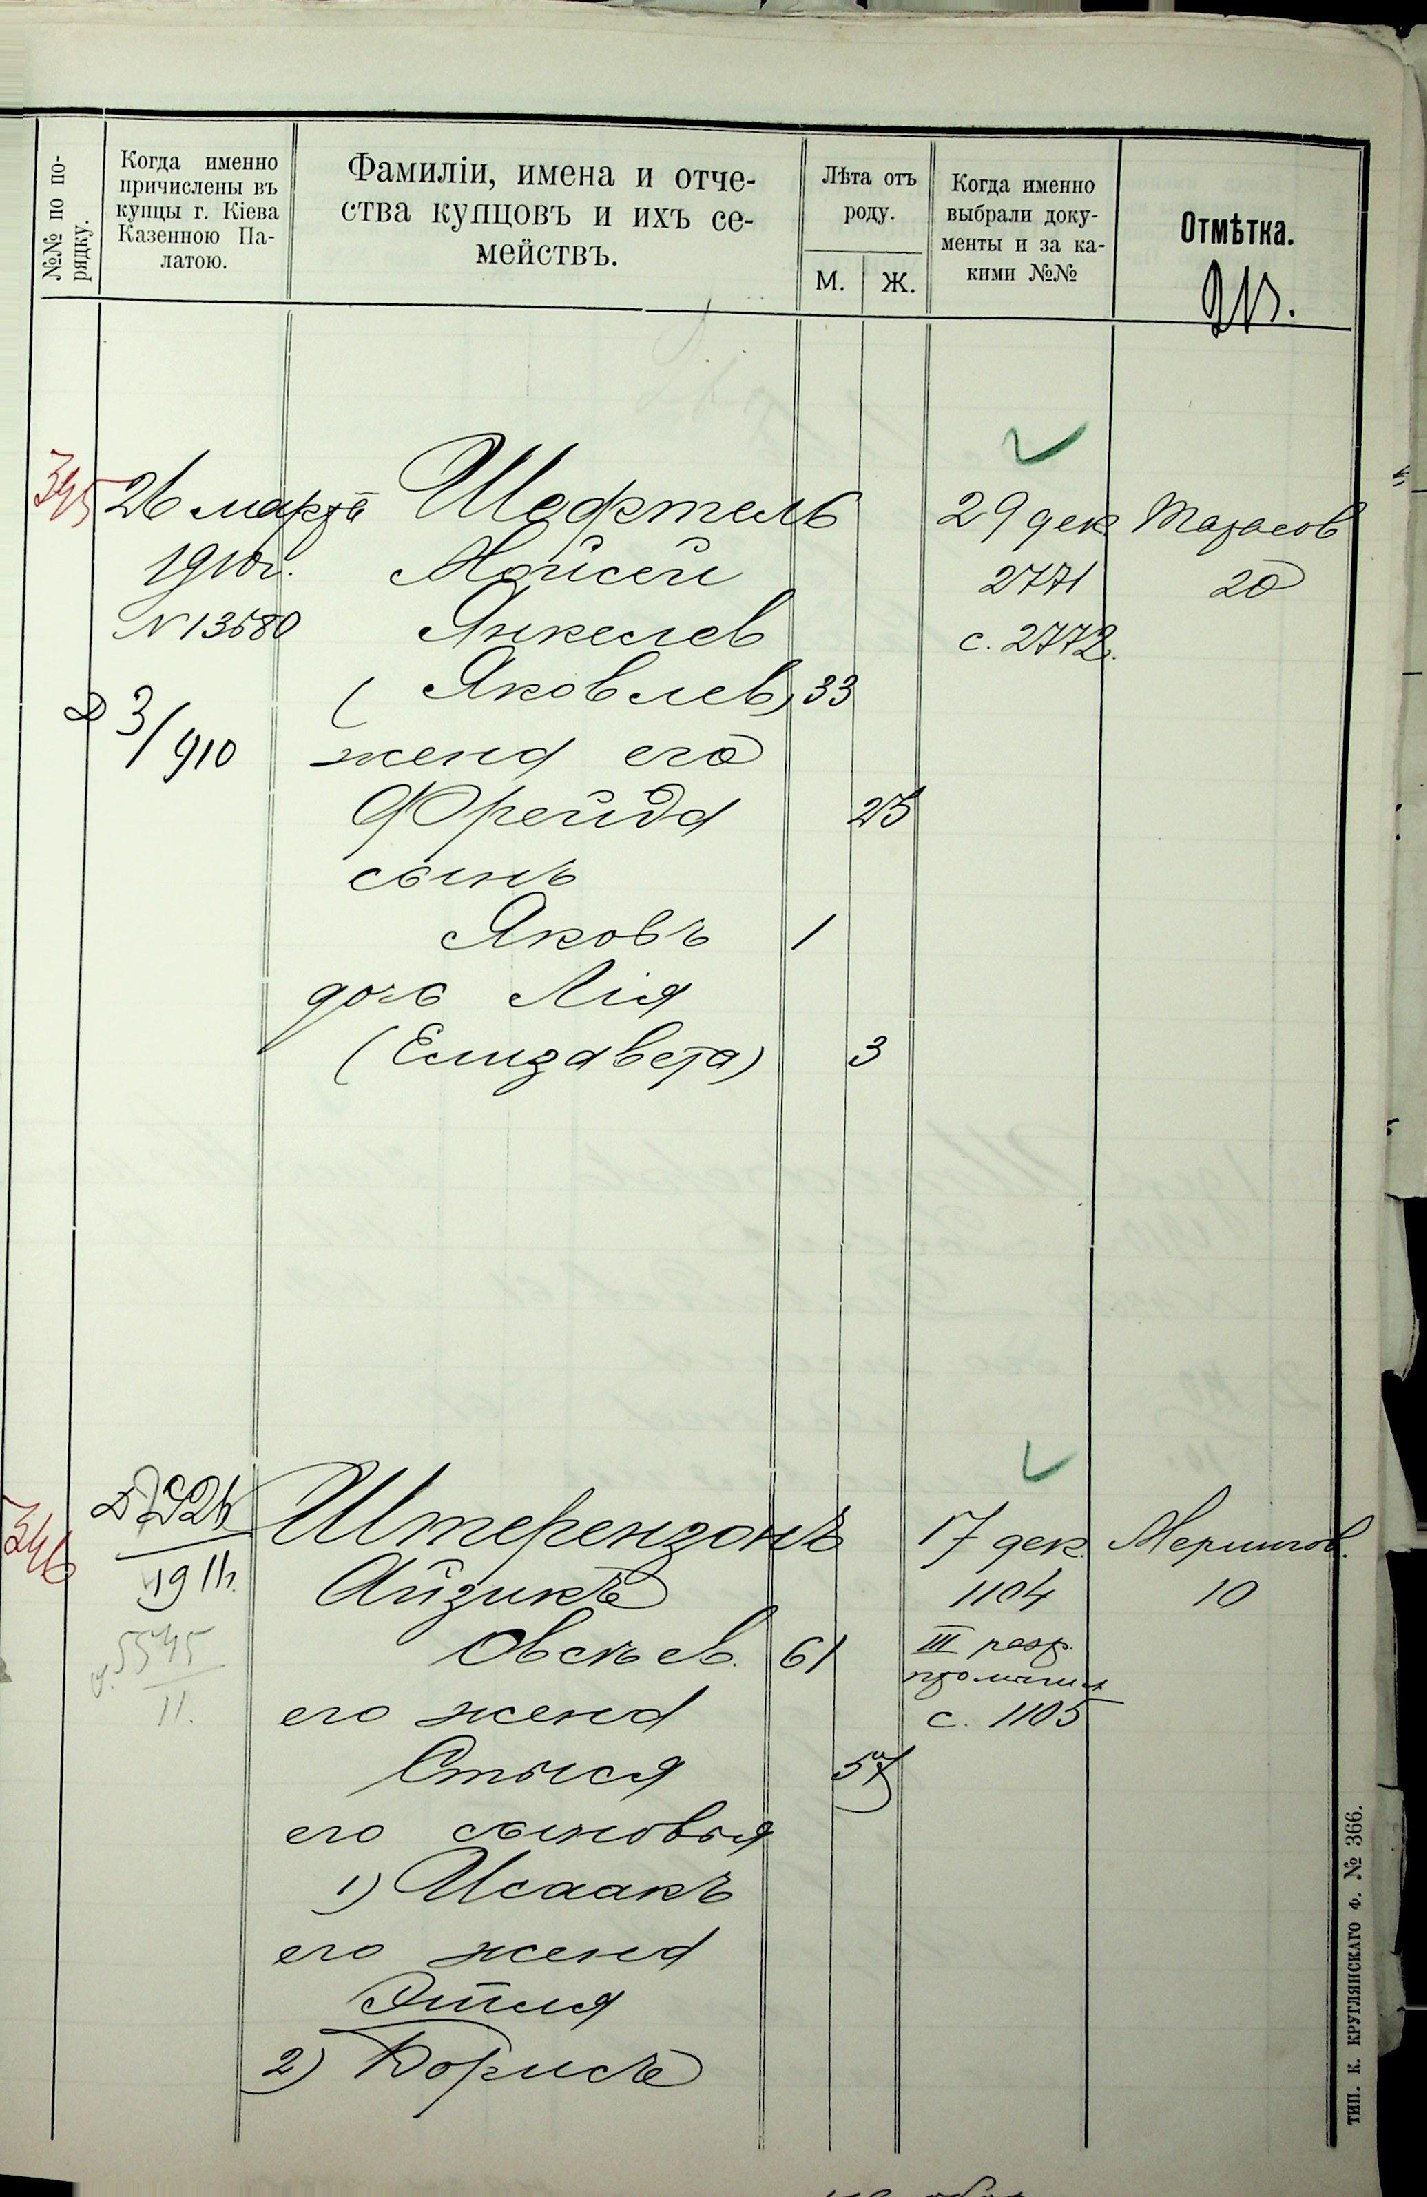 №№ по по-
рядку.
Когда именно
причислены въ
купцы г. Кіева
Казенною Па-
латою.
Фамиліи, имена и отче-
ства купцовъ и ихъ се-
мействъ.
Лѣта отъ
роду.
М.
Ж.
Когда именно
выбрали доку-
менты и за ка-
кими №№
Отмѣтка.
345
26 марта
1910г.
N 13580
Д 3/910
Шефтель
Мойсей
Янкелев
(Яковлев) 33
жена его
Фрейда 25
сынъ
Яковъ 1
дочь Лія
(Елизавета) 3
29 дек
2771
с. 2772.
Тарасов
20
346
1911.
5545
11.
Штерензонъ
Айзикъ
Овсѣев. 61
его жена
Стыся 57
его сыновья
1) Исаакъ
его жена
Этля
2) Борисъ
17 дек.
1104
III разр.
промысл
с. 1105
Мерингов.
10
ТИП. К. КРУГЛЯНСКАГО Ф. № 366.